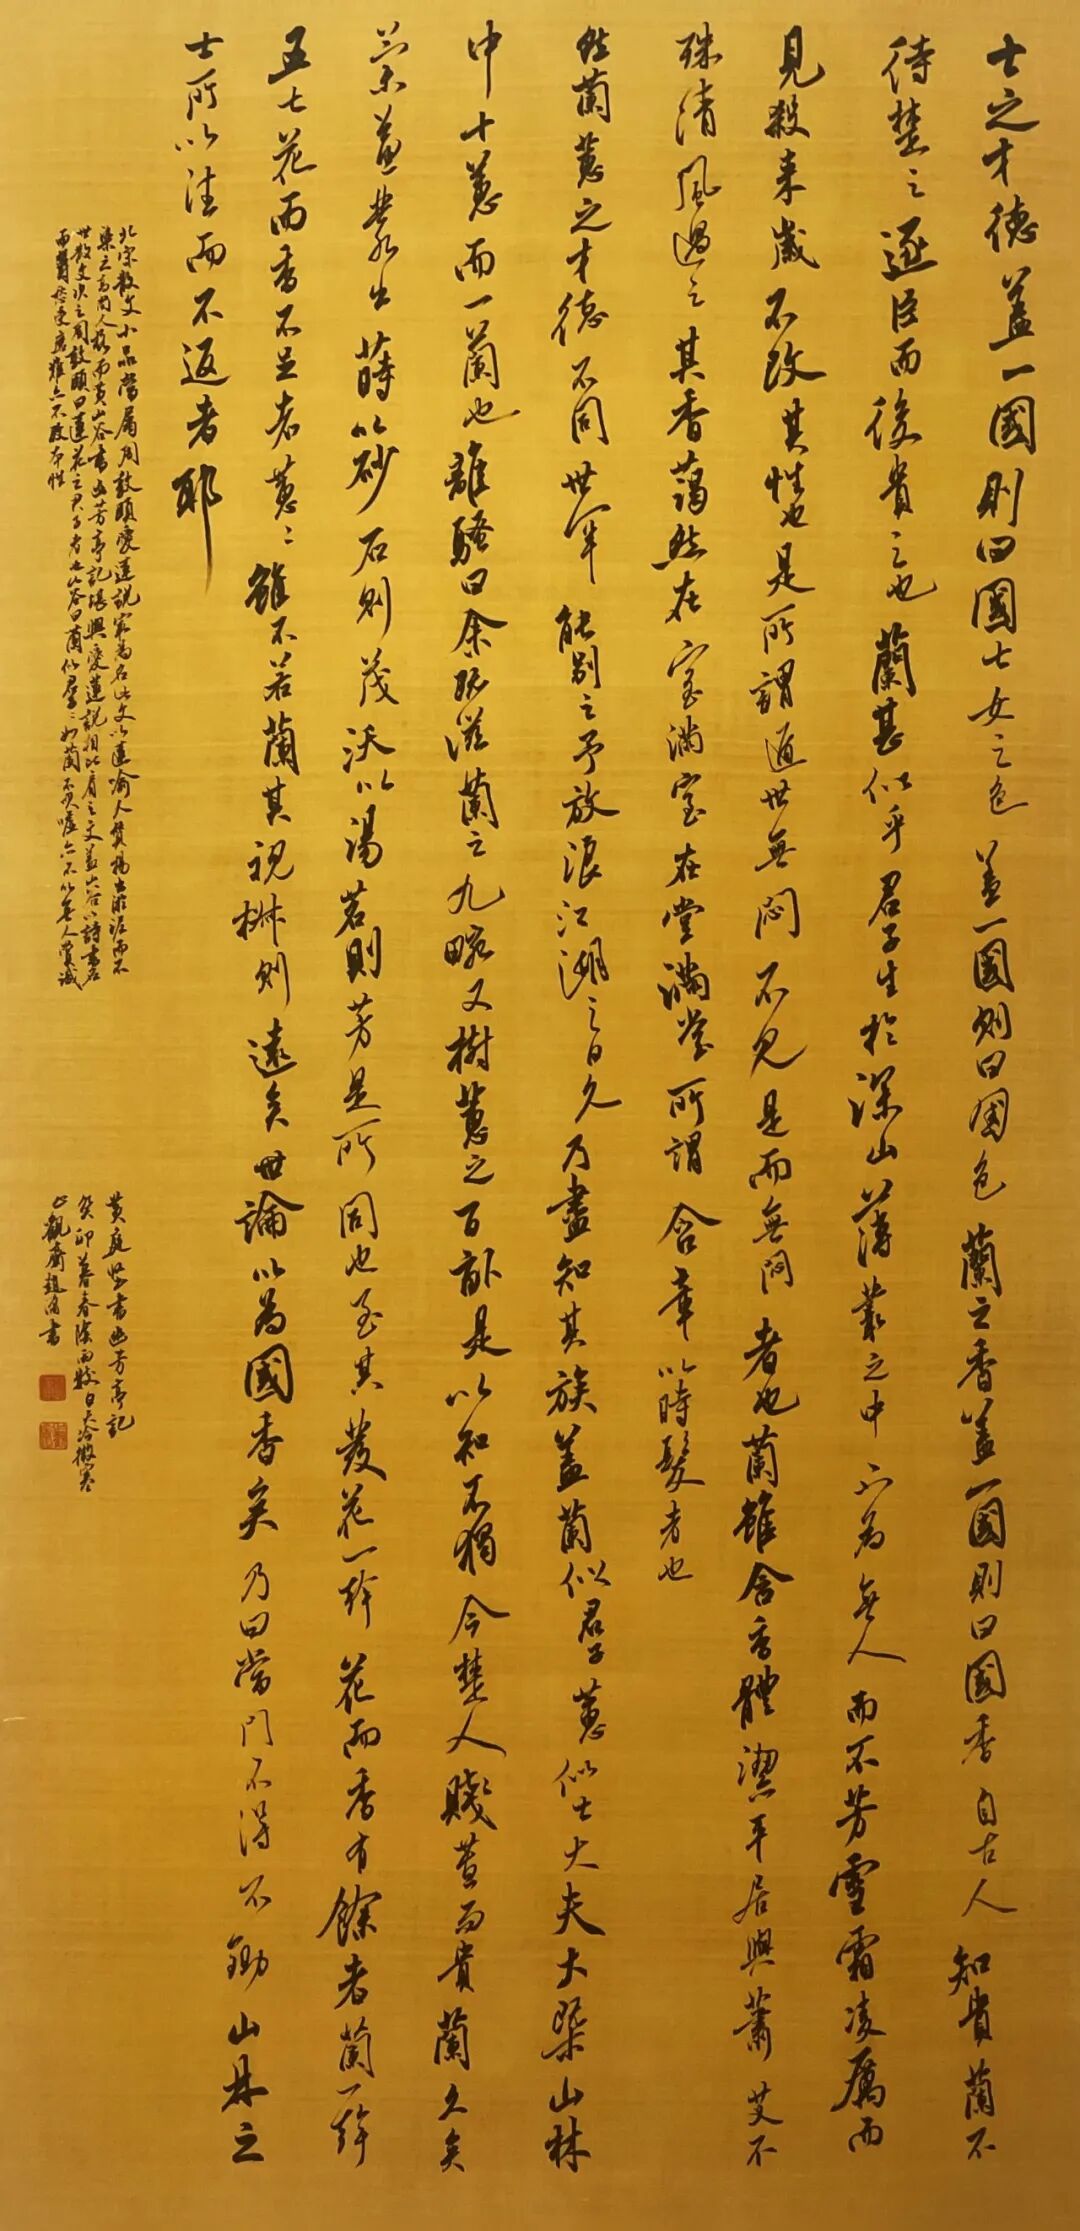 士之才德蓋一國則曰國士女之色蓋一國則曰國色蘭之香蓋一國則曰國香自古人知貴蘭不
待楚之逐臣而後貴之也蘭甚似乎君子生於深山薄叢之中不為無人而不芳雪霜凌厲而
見殺來歲不改其性也是所謂遁世無悶不見是而無悶者也蘭雖含香體潔平居與蕭艾不
殊清風過之其香藹然在室滿室在堂滿堂所謂含章以時發者也
然蘭蕙之才德不同世罕能別之予放浪江湖之日久乃盡知其族蓋蘭似君子蕙似士大夫大槩山林
中十蕙而一蘭也離騷曰余既滋蘭之九畹又樹蕙之百畝是以知不獨今楚人賤蕙而貴蘭久矣
蘭蕙叢出蒔以砂石則茂沃以湯茗則芳是所同也至其發花一幹花而香有餘者蘭一幹
五七花而香不足者蕙蕙雖不若蘭其視椒則遠矣世論以為國香矣乃曰當門不得不鋤山林之
士所以往而不返者耶
北宋散文小品當屬周敦頤愛蓮說最為名此文以蓮喻人贊揚出淤泥而不
染之高尚人格而黃山谷書幽芳亭記堪與愛蓮說相比肩之文蓋山谷以詩書名
世散文次之周敦頤曰蓮花之君子者也山谷曰蘭似君子蘭不以無人賞識
而受磨難亦不改本性
黃庭堅書幽芳亭記
癸卯暮春滨雨數日天冷微寒
觀齋趙書